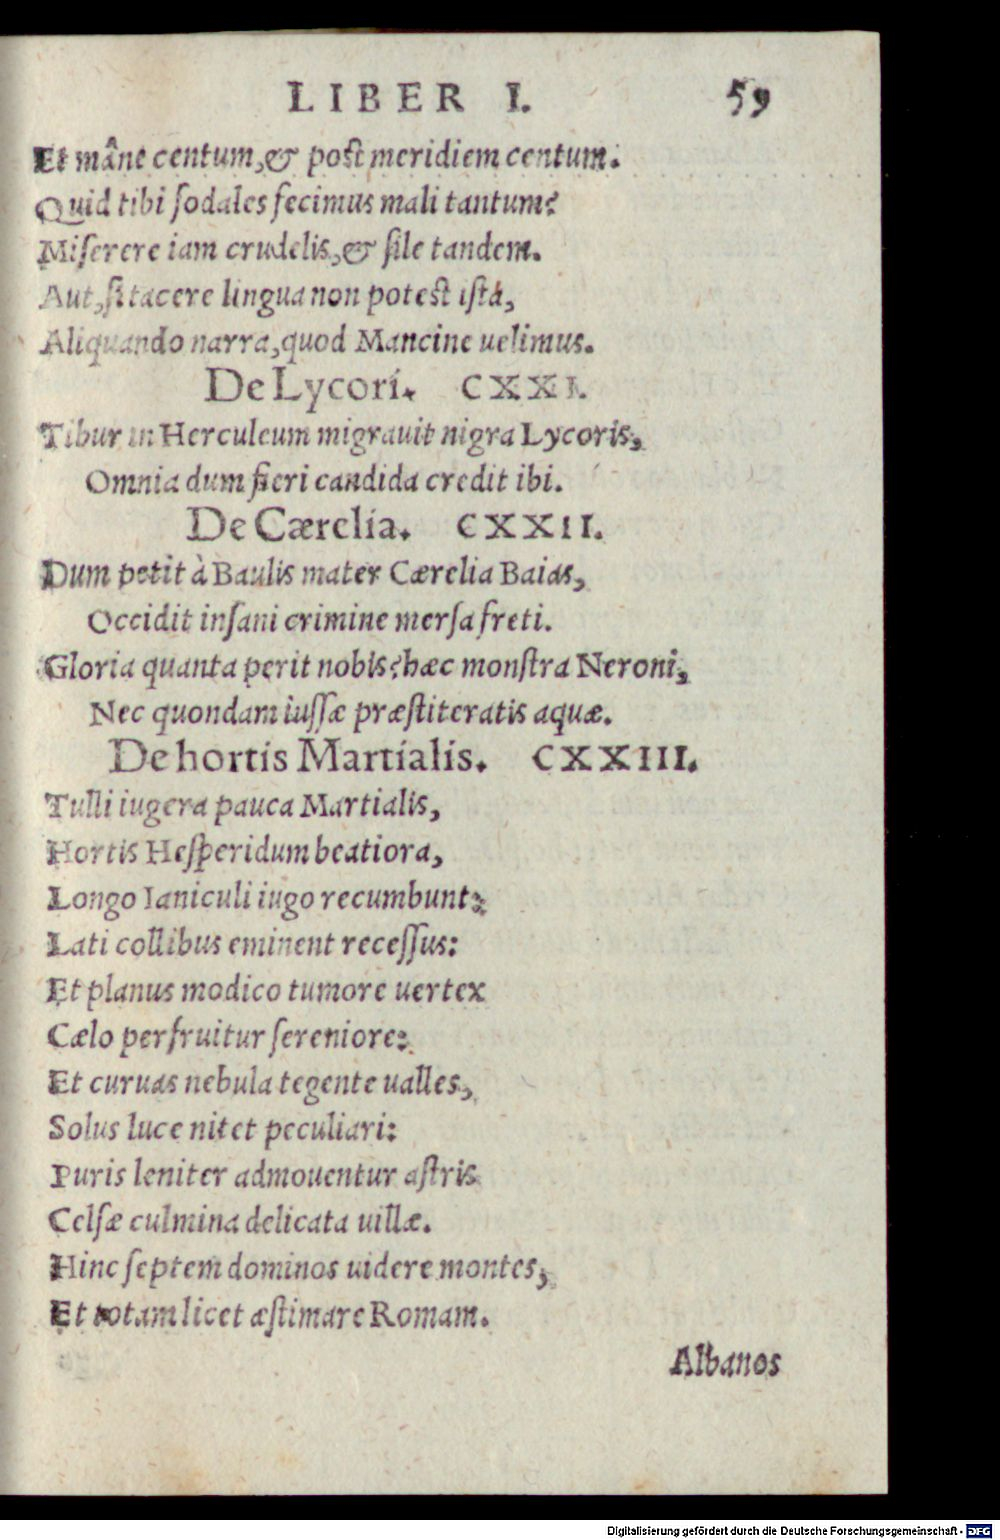 LIBER I. 59
Et mâne centum, & post meridiem centum.
Quid tibi sodales fecimus mali tantum?
Miserere iam crudelis, & sile tandem.
Aut, si tacere lingua non potest ista,
Aliquando narra, quod Mancine uelimus.
De Lycori. CXXI.
Tibur in Herculeum migrauit nigra Lycoris,
Omnia dum fieri candida credit ibi.
De Cærelia. CXXII.
Dum petit à Baulis mater Cærelia Baias,
Occidit insani crimine mersa freti.
Gloria quanta perit nobis? hæc monstra Neroni,
Nec quondam iussæ præstiteratis aquæ.
De hortis Martialis. CXXIII.
Tulli iugera pauca Martialis,
Hortis Hesperidum beatiora,
Longo Ianiculi iugo recumbunt:
Lati collibus eminent recessus:
Et planus modico tumore uertex
Cælo perfruitur sereniore:
Et curuas nebula tegente ualles,
Solus luce nitet peculiari:
Puris leniter admouentur astris
Celsæ culmina delicata uillæ.
Hinc septem dominos uidere montes,
Et totam licet æstimare Romam.
Albanos
Digitalisierung gefördert durch die Deutsche Forschungsgemeinschaft - DFG